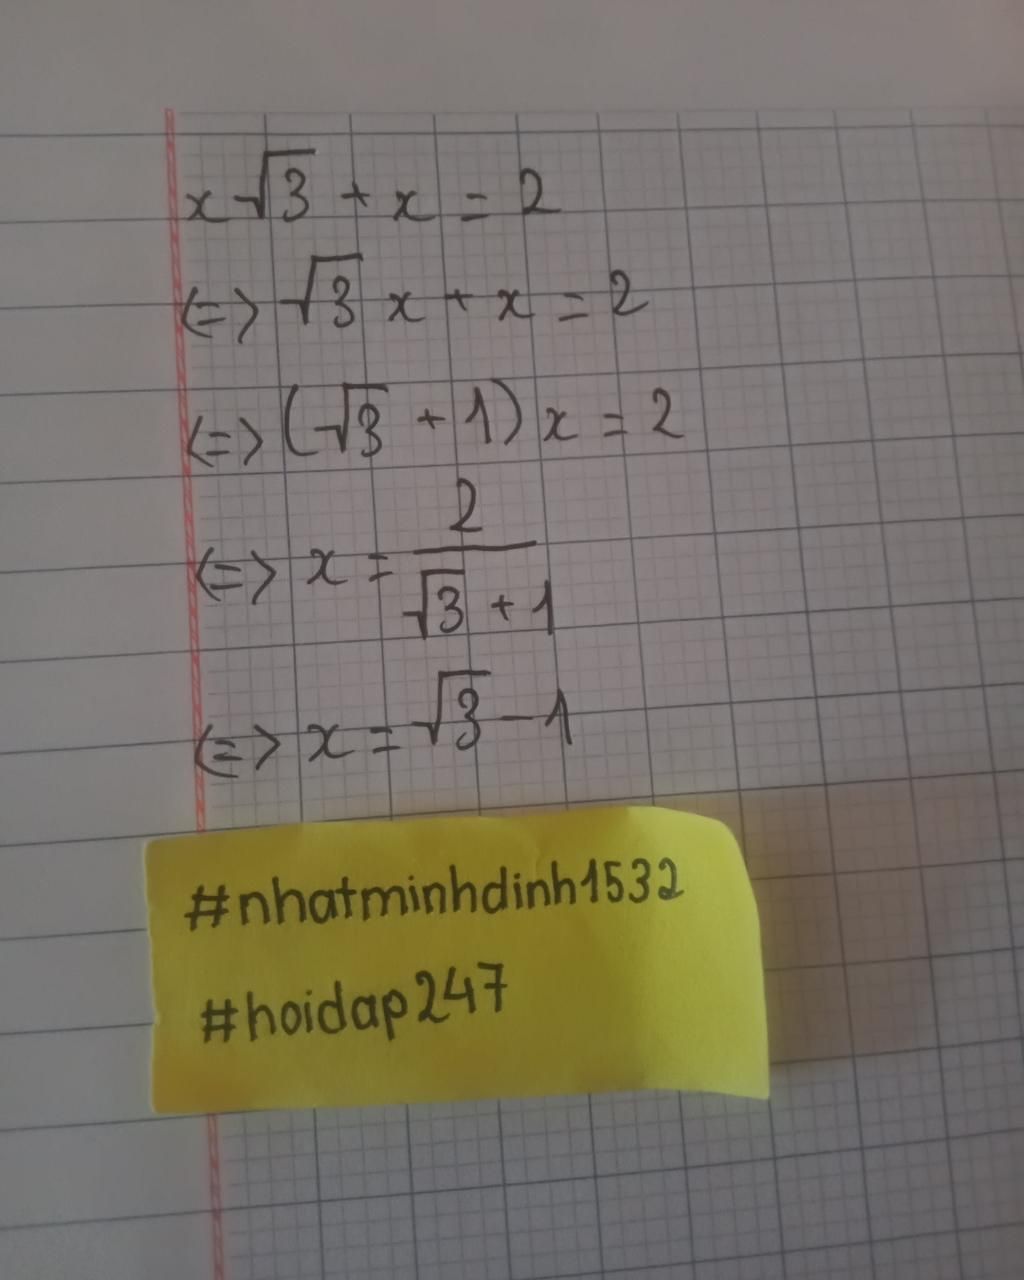 x√3 + x = 2
<=> √3 x + x = 2
<=> (√3 + 1) x = 2
<=> x = 2/(√3 + 1)
<=> x = √3 - 1
#nhatminhdinh1532
#hoidap247